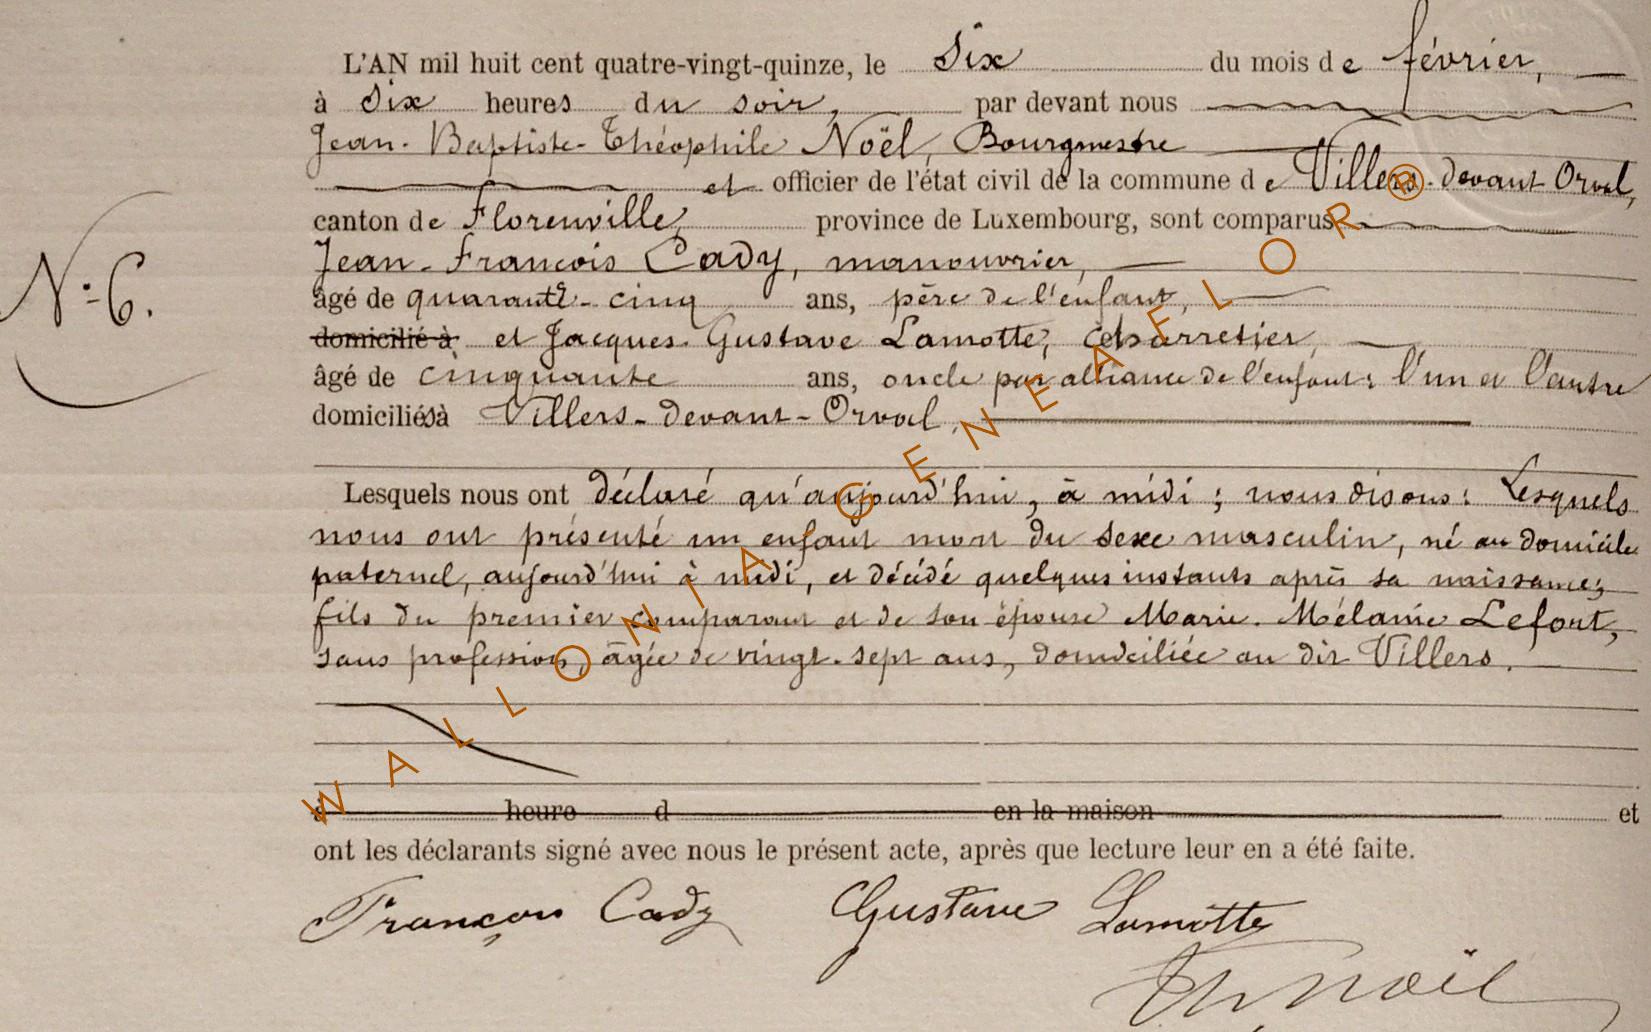 L'AN mil huit cent quatre-vingt-quinze, le six du mois de février,
à six heures du soir, par devant nous
Jean-Baptiste-Théophile Noël, Bourgmestre
et officier de l'état civil de la commune de Villers-devant Orval,
canton de Florenville, province de Luxembourg, sont comparus
Jean-François Cady, manouvrier,
âgé de quarante-cinq ans, père de l'enfant,
domicilié à et Jacques-Gustave Lamotte, charretier,
N° 6.
âgé de cinquante ans, oncle par alliance de l'enfant; l'un et l'autre
domiciliés à Villers-devant-Orval,
Lesquels nous ont déclaré qu'aujourd'hui, à midi; nous disons: Lesquels
nous ont présenté un enfant mort du sexe masculin, né au domicile
paternel, aujourd'hui à midi, et décédé quelques instants après sa naissance;
fils du premier comparant et de son épouse Marie-Mélanie Lefort,
sans profession, âgée de vingt-sept ans, domiciliée au dit Villers.
à heure d en la maison et
ont les déclarants signé avec nous le présent acte, après que lecture leur en a été faite.
François Cady Gustave Lamotte
Th Noël
WALLONIA-GENEAFLOR®